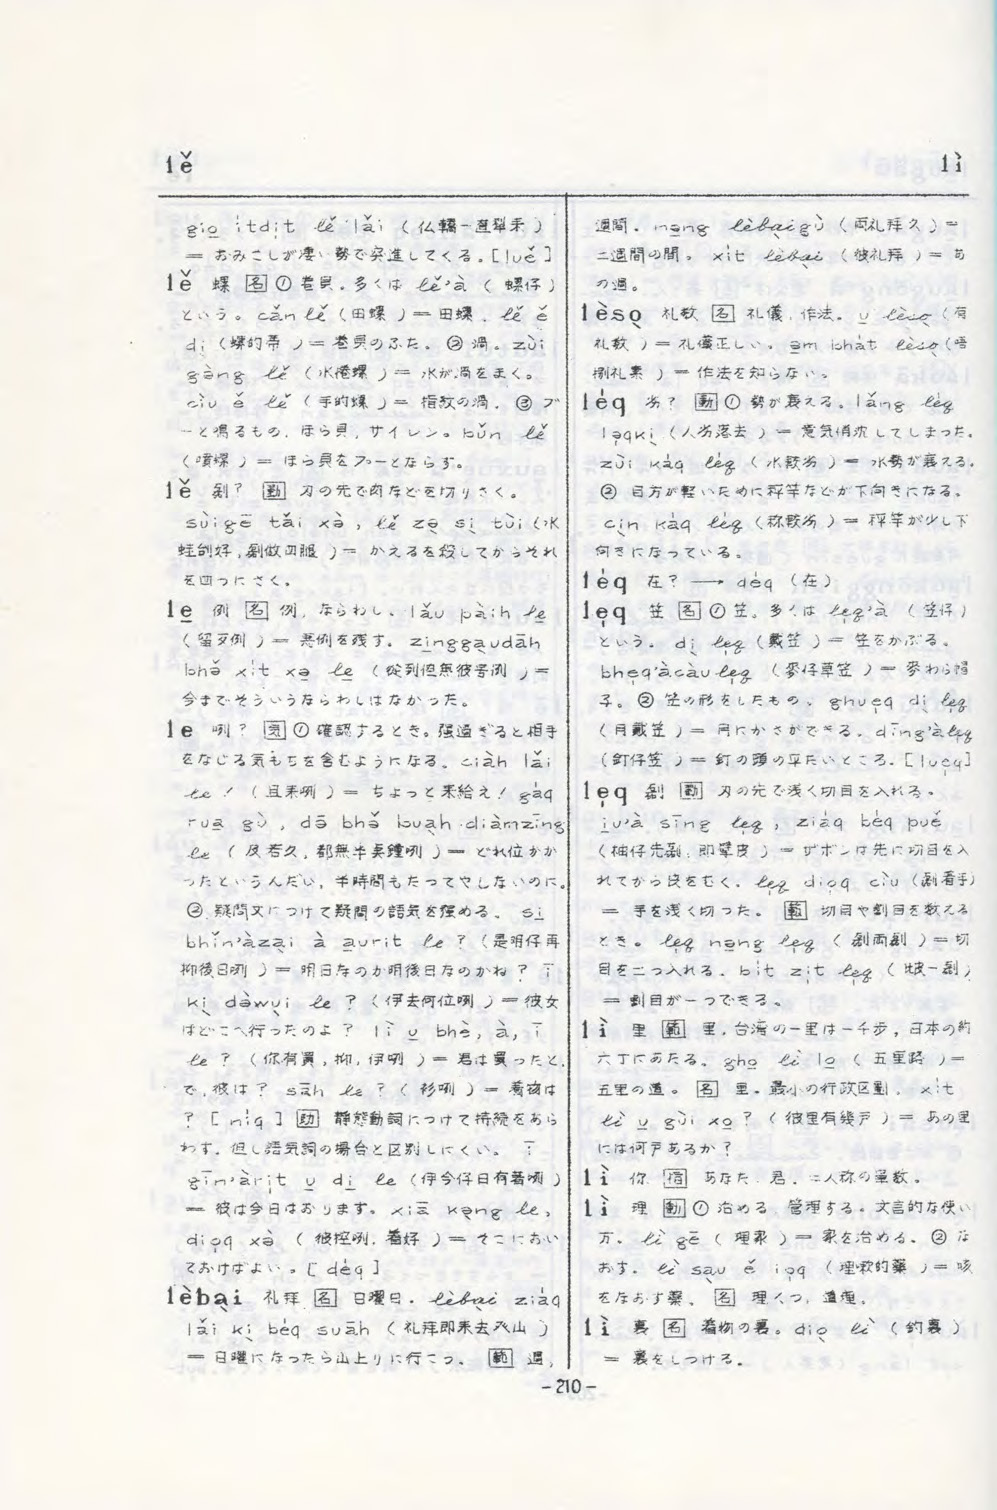 lě
lì
gịo ịtdịt lě lǎi (仏轎一直犁来)
＝おみこしが凄い勢で突進してくる。[luě]
lě 螺 [名] ①巻貝。多くは lě'à (螺仔)
という。cǎn lě (田螺)＝田螺. lě ě
dị (螺的蒂)＝巻貝のふた。②渦。zùi
gàng lě (水捲螺)＝水が渦をまく。
cìu ě lě (手的螺)＝指紋の渦. ③ブ
ーと鳴るもの, ほら貝, サイレン。bǔn lě
(噴螺)＝ほら貝をブーとならす。
lě 剔? [動] 刃の先で肉などを切りさく。
sùigē tǎi xə̀, lě zə sị tùi (水
蛙刣好, 做四腿)＝かえるを殺してからそれ
を四つにさく。
lẹ 例 [名] 例, ならわし。lǎu pàih lẹ
(留歹例)＝悪例を残す。zǐnggạudāh
bhə̌ xịt xə lẹ (從到但無彼号例)＝
今までそういうならわしはなかった。
le 咧? [気] ①確認するとき。強過ぎると相手
をなじる気もちを含むようになる。ciàh lǎi
le! (且来咧)＝ちょっと来給え! gáq
rụa gù, dā bhə̌ buạh diàmzīng
le (及若久, 都無半點鐘咧)＝どれ位かか
ったというんだい, 半時間もたってやしないのに。
②疑問文につけて疑問の語気を強める。sị
bhǐn'àzại à ạurit le? (是明仔再
抑後日咧)＝明日なのか明後日なのかね? ī
kị dàwụi le? (伊去何位咧)＝彼女
はどこへ行ったのよ? lì ụ bhè, à, ī
le? (你有買, 抑, 伊咧)＝君は買ったと,
で, 彼は? sāh le? (衫咧)＝着物は
? [níq] [助] 静態動詞につけて持続をあら
わす。但し語気詞の場合と区別しにくい。ī
gīn'àrịt ụ dị le (伊今仔日有著咧)
＝彼は今日はおります。xiā kạng le,
diọq xə̀ (彼控咧, 着好)＝そこにおい
ておけばよい。[déq]
lèbại 礼拝 [名] 日曜日。lèbại ziáq
lǎi kị béq suāh (礼拝即来去𬦰山)
＝日曜になったら山上りに行こう。[範] 週,
週間。nạng lèbạigù (両礼拜久)＝
二週間の間。xít lèbại (彼礼拜)＝あ
の週。
lèsọ 礼数 [名] 礼儀, 作法。ụ lèsọ (有
礼数)＝礼儀正しい。ạm bhát lèsọ (唔
捌礼素)＝作法を知らない。
léq 劣? [動] ①勢が衰える。lǎng léq
lạqkị (人劣落去)＝意気消沈してしまった。
zùi káq léq (水較劣)＝水勢が衰える。
②目方が軽いために秤竿などが下向きになる。
cịn káq léq (称較劣)＝秤竿が少し下
向きになっている。
léq 在? ―→ déq (在)
lẹq 笠 [名] ①笠。多くは lẹq'à (笠仔)
という。dị lẹq (戴笠)＝笠をかぶる。
bhẹq'àcàu lẹq (麥仔草笠)＝麦わら帽
子。②笠の形をしたもの。ghuẹq dị lẹq
(月戴笠)＝月にかさができる。dīng'à lẹq
(釘仔笠)＝釘の頭の平たいところ。[luẹq]
lẹq 劙 [動] 刃の先で浅く切目を入れる。
ịu'à sīng lẹq, ziáq béq puě
(柚仔先劙, 即擘皮)＝ザボンは先に切目を入
れてから皮をむく。lẹq diọq cìu (劙着手)
＝手を浅く切った。[範] 切目や割目を数える
とき。lẹq nạng lẹq (劙両劙)＝切
目を二つ入れる。bịt zịt lẹq (一劙)
＝割目が一つできる。
lì 里 [範] 里。台湾の一里は一千歩, 日本の約
六丁にあたる。ghọ lì lọ (五里路)＝
五里の道。[名] 里。最小の行政区劃。xít
lì ụ gùi xọ? (彼里有幾戸)＝あの里
には何戸あるか?
lì 你 [信] あなた, 君, 二人称の単数。
lì 理 [動] ①治める 管理する。文言的な使い
方。lì gē (理家)＝家を治める。②な
おす。lì sạu ě iọq (理嗽的藥)＝咳
をなおす薬。[名] 理くつ, 道理。
lì 裏 [名] 着物の裏。diọ lì (釣裏)
＝裏をしつける。
-210-